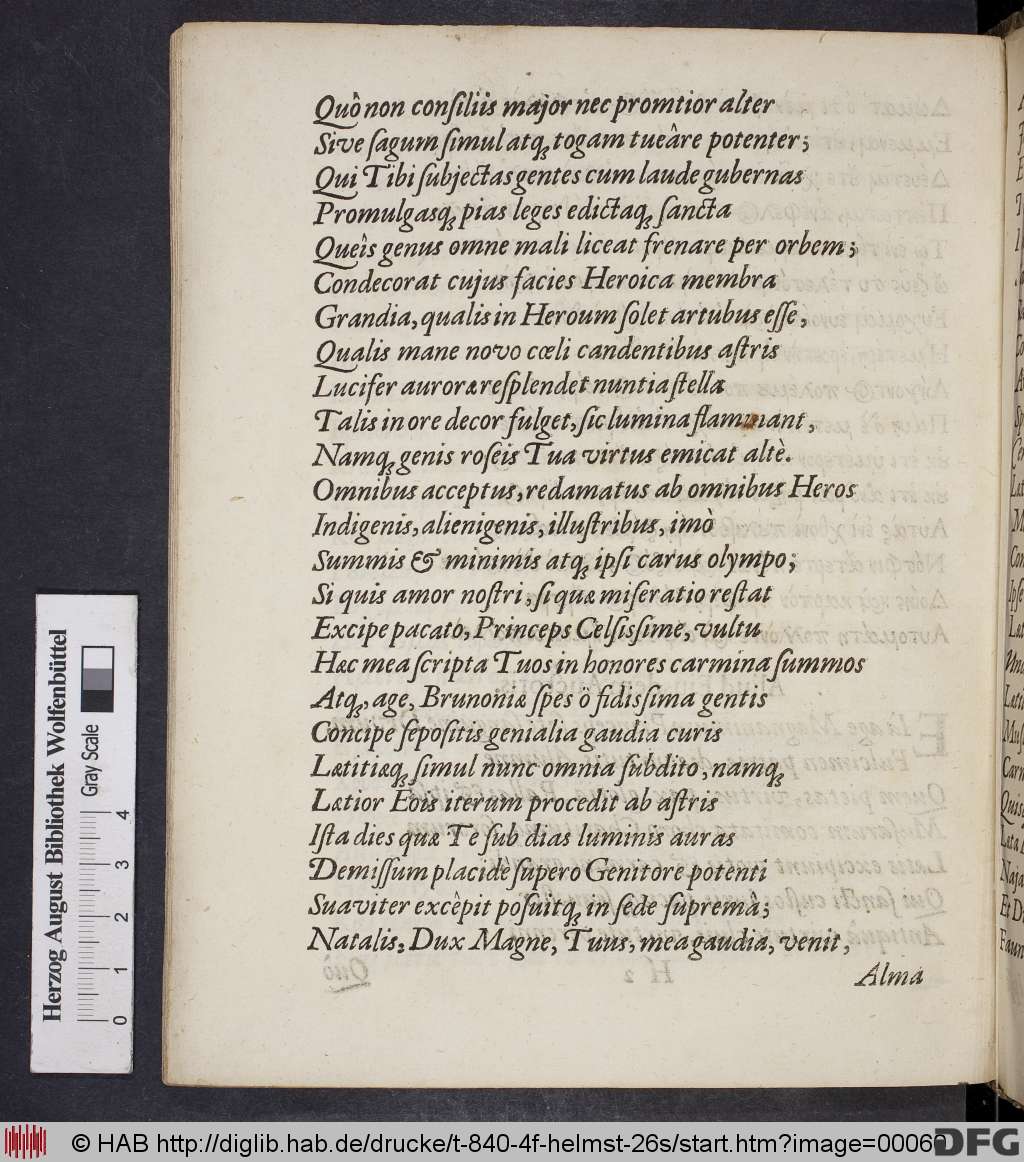 Quô non conſiliis major nec promtior alter
Sive ſagum ſimul atqꝫ togam tueâre potenter;
Qui Tibi ſubjectas gentes cum laude gubernas
Promulgasqꝫ pias leges edictaqꝫ ſancta
Queîs genus omne mali liceat frenare per orbem;
Condecorat cujus facies Heroica membra
Grandia, qualis in Heroum ſolet artubus eſſe,
Qualis mane novo cœli candentibus aſtris
Lucifer auroræ reſplendet nuntia ſtella
Talis in ore decor fulget, ſic lumina flammant,
Namqꝫ genis roſeis Tua virtus emicat altè.
Omnibus acceptus, redamatus ab omnibus Heros
Indigenis, alienigenis, illuſtribus, imò
Summis & minimis atqꝫ ipſi carus olympo;
Si quis amor noſtri, ſi quæ miſeratio reſtat
Excipe pacato, Princeps Celſisſime, vultu
Hæc mea ſcripta Tuos in honores carmina ſummos
Atqꝫ, age, Brunoniæ ſpes ô fidisſima gentis
Concipe ſepoſitis genialia gaudia curis
Lætitiæqꝫ ſimul nunc omnia ſubdito, namqꝫ
Lætior Eois iterum procedit ab aſtris
Iſta dies quæ Te ſub dias luminis auras
Demiſſum placide ſupero Genitore potenti
Suaviter excêpit poſuitqꝫ in ſede ſupremâ;
Natalis, Dux Magne, Tuus, mea gaudia, venit,
Alma
Herzog August Bibliothek Wolfenbüttel
Gray Scale
0 1 2 3 4
© HAB http://diglib.hab.de/drucke/t-840-4f-helmst-26s/start.htm?image=00060
DFG